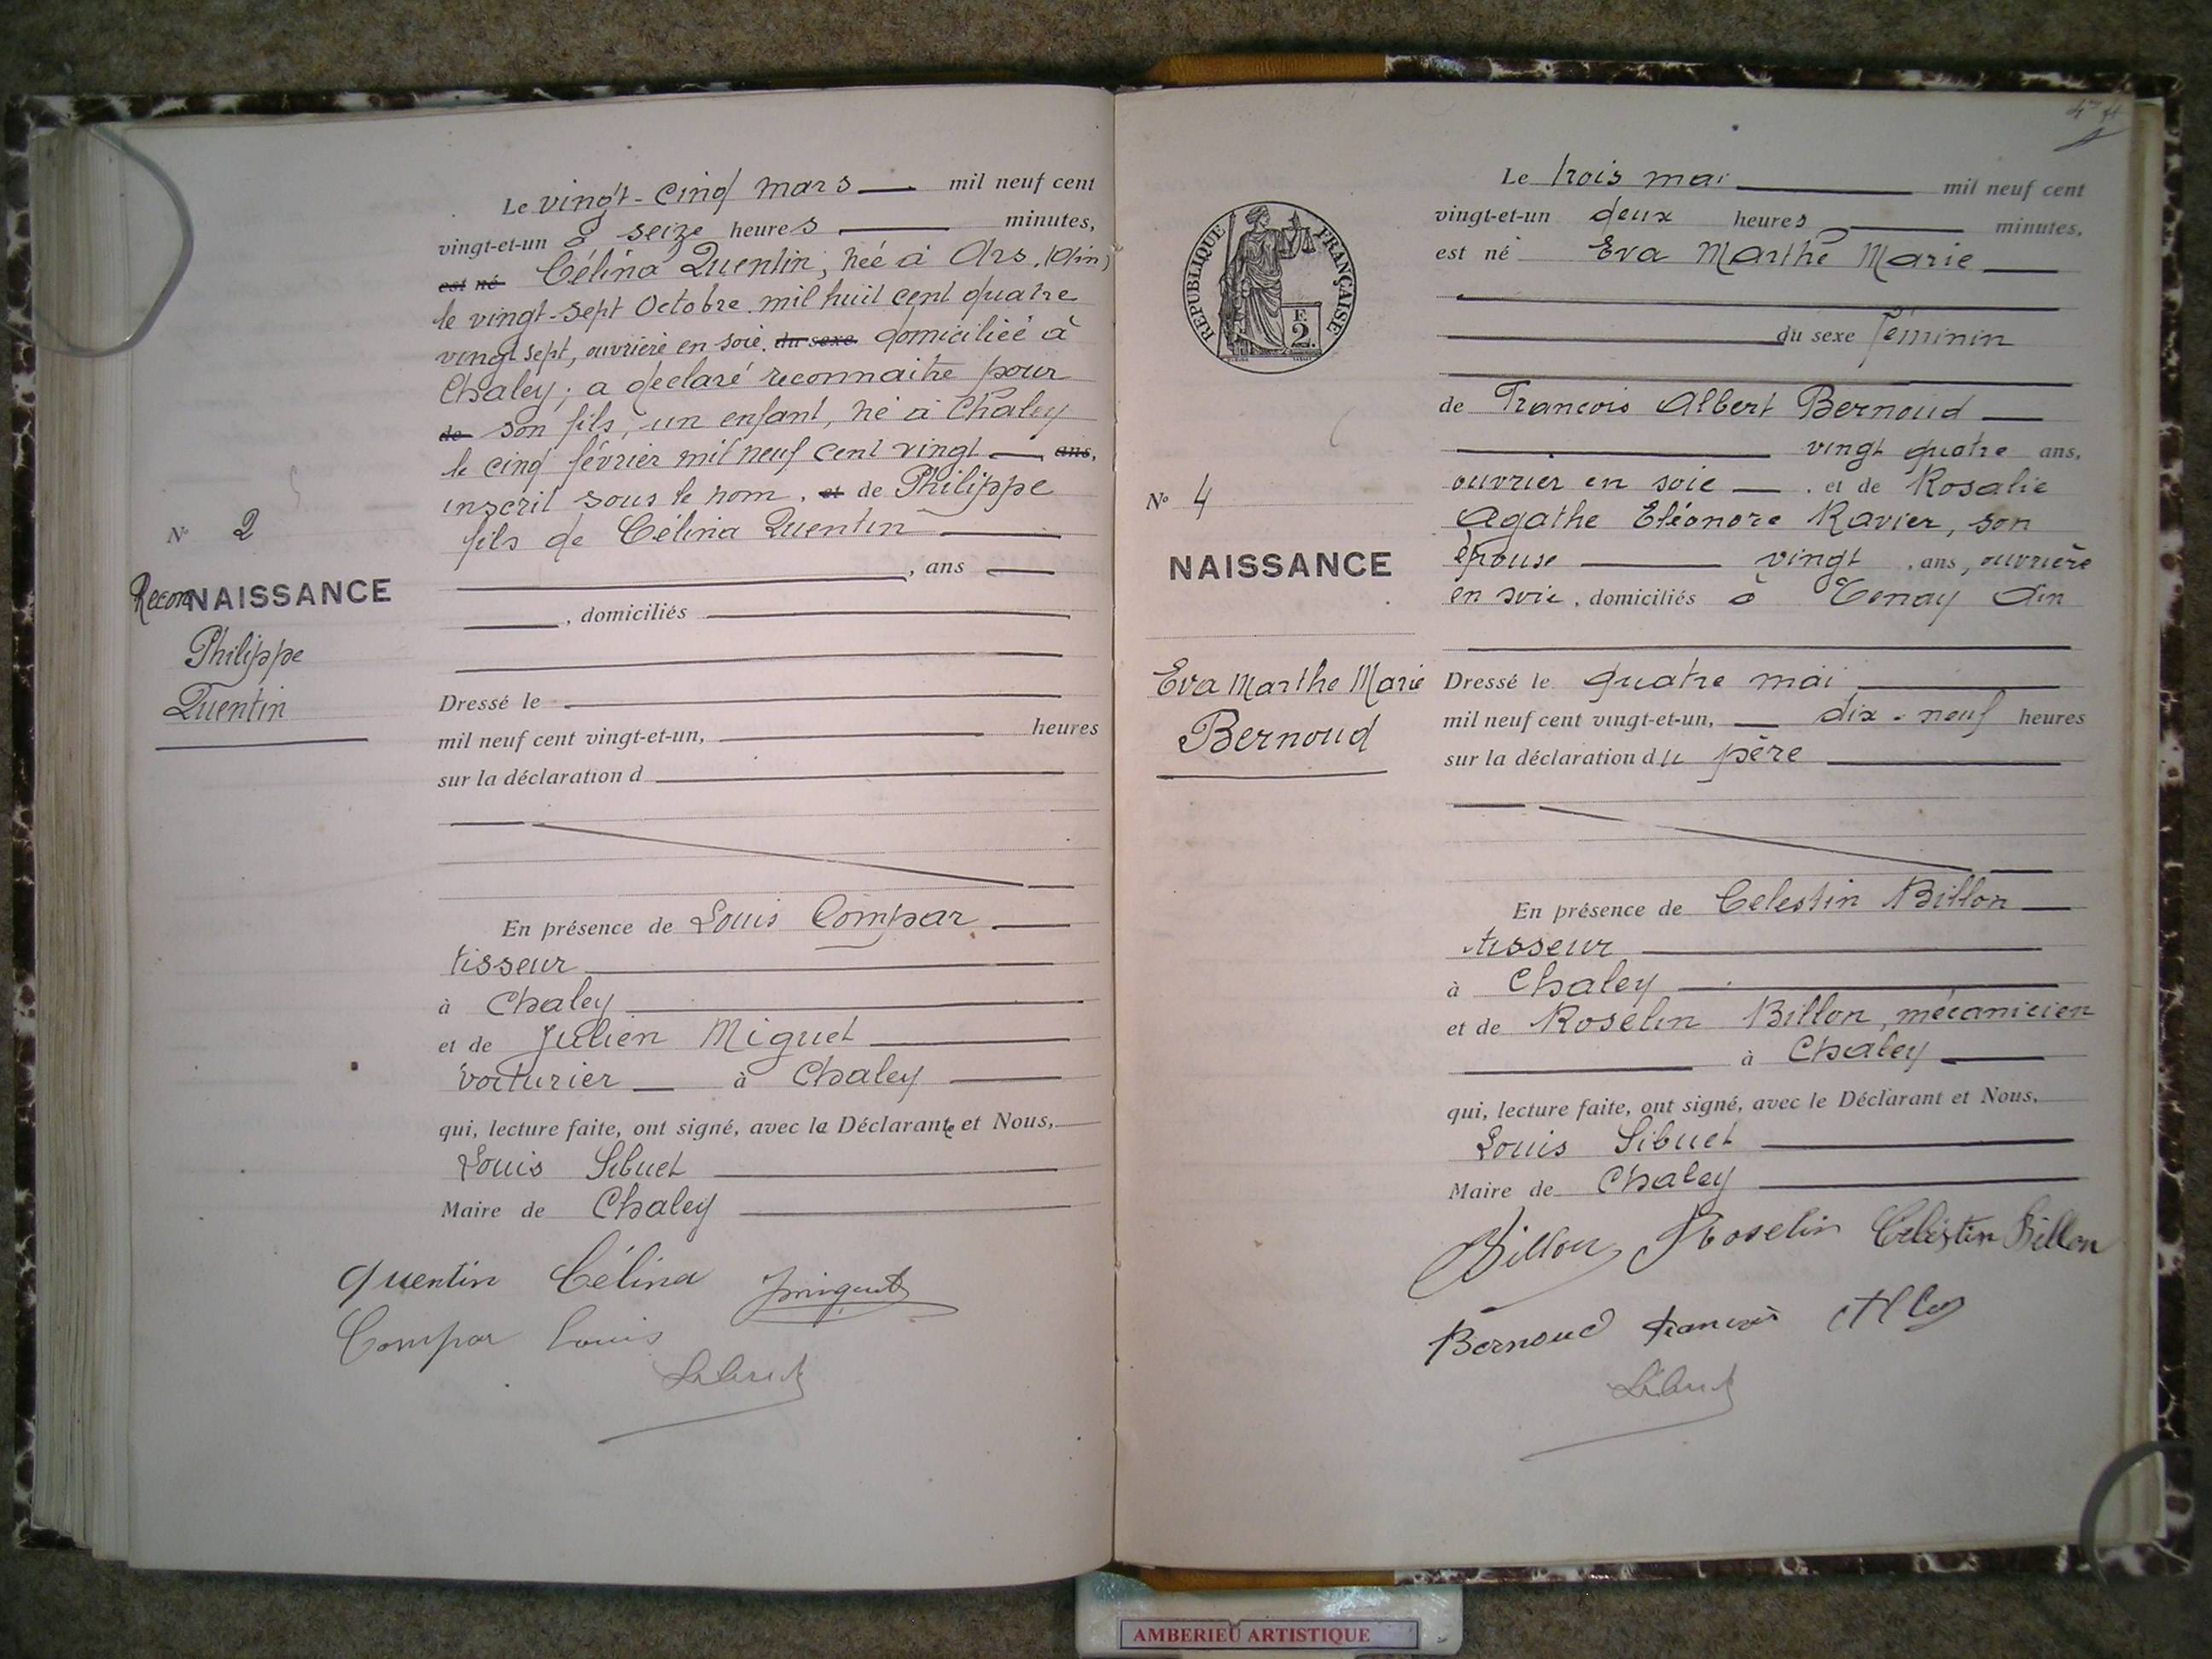 Le vingt-cinq mars mil neuf cent
vingt-et-un à seize heures minutes,
est né Célina Quentin, née à Ars, (Ain)
le vingt-sept Octobre mil huit cent quatre
vingt sept, ouvrière en soie. du sexe domiciliée à
Chaley; a declaré reconnaitre pour
de son fils, un enfant, né à Chaley
le cinq février mil neuf cent vingt ans,
inscrit sous le nom, et de Philippe
fils de Célina Quentin
, ans
, domiciliés
Dressé le
mil neuf cent vingt-et-un, heures
sur la déclaration d
En présence de Louis Compar
tisseur
à Chaley
et de Julien Miguet
voiturier à Chaley
qui, lecture faite, ont signé, avec la Déclarante et Nous,
Louis Sibuet
Maire de Chaley
Quentin Célina Jmiguet
Compar Louis
Sibuet
N° 2
ReconNAISSANCE
Philippe
Quentin
4
RÉPUBLIQUE FRANÇAISE
F.
2.
N° 4
NAISSANCE
Eva Marthe Marie
Bernoud
Le trois mai mil neuf cent
vingt-et-un deux heures minutes,
est né Eva Marthe Marie
du sexe féminin
de Francois Albert Bernoud
vingt quatre ans,
ouvrier en soie , et de Rosalie
Agathe Eléonore Ravier, son
épouse vingt , ans, ouvrière
en soie, domiciliés à Tenay Ain
Dressé le quatre mai
mil neuf cent vingt-et-un, dix-neuf heures
sur la déclaration du père
En présence de Celestin Billon
tisseur
à Chaley
et de Roselin Billon, mécanicien
à Chaley
qui, lecture faite, ont signé, avec le Déclarant et Nous,
Louis Sibuet
Maire de Chaley
Billon Roselin Celestin Billon
Bernoud francois
Sibuet
AMBERIEU ARTISTIQUE